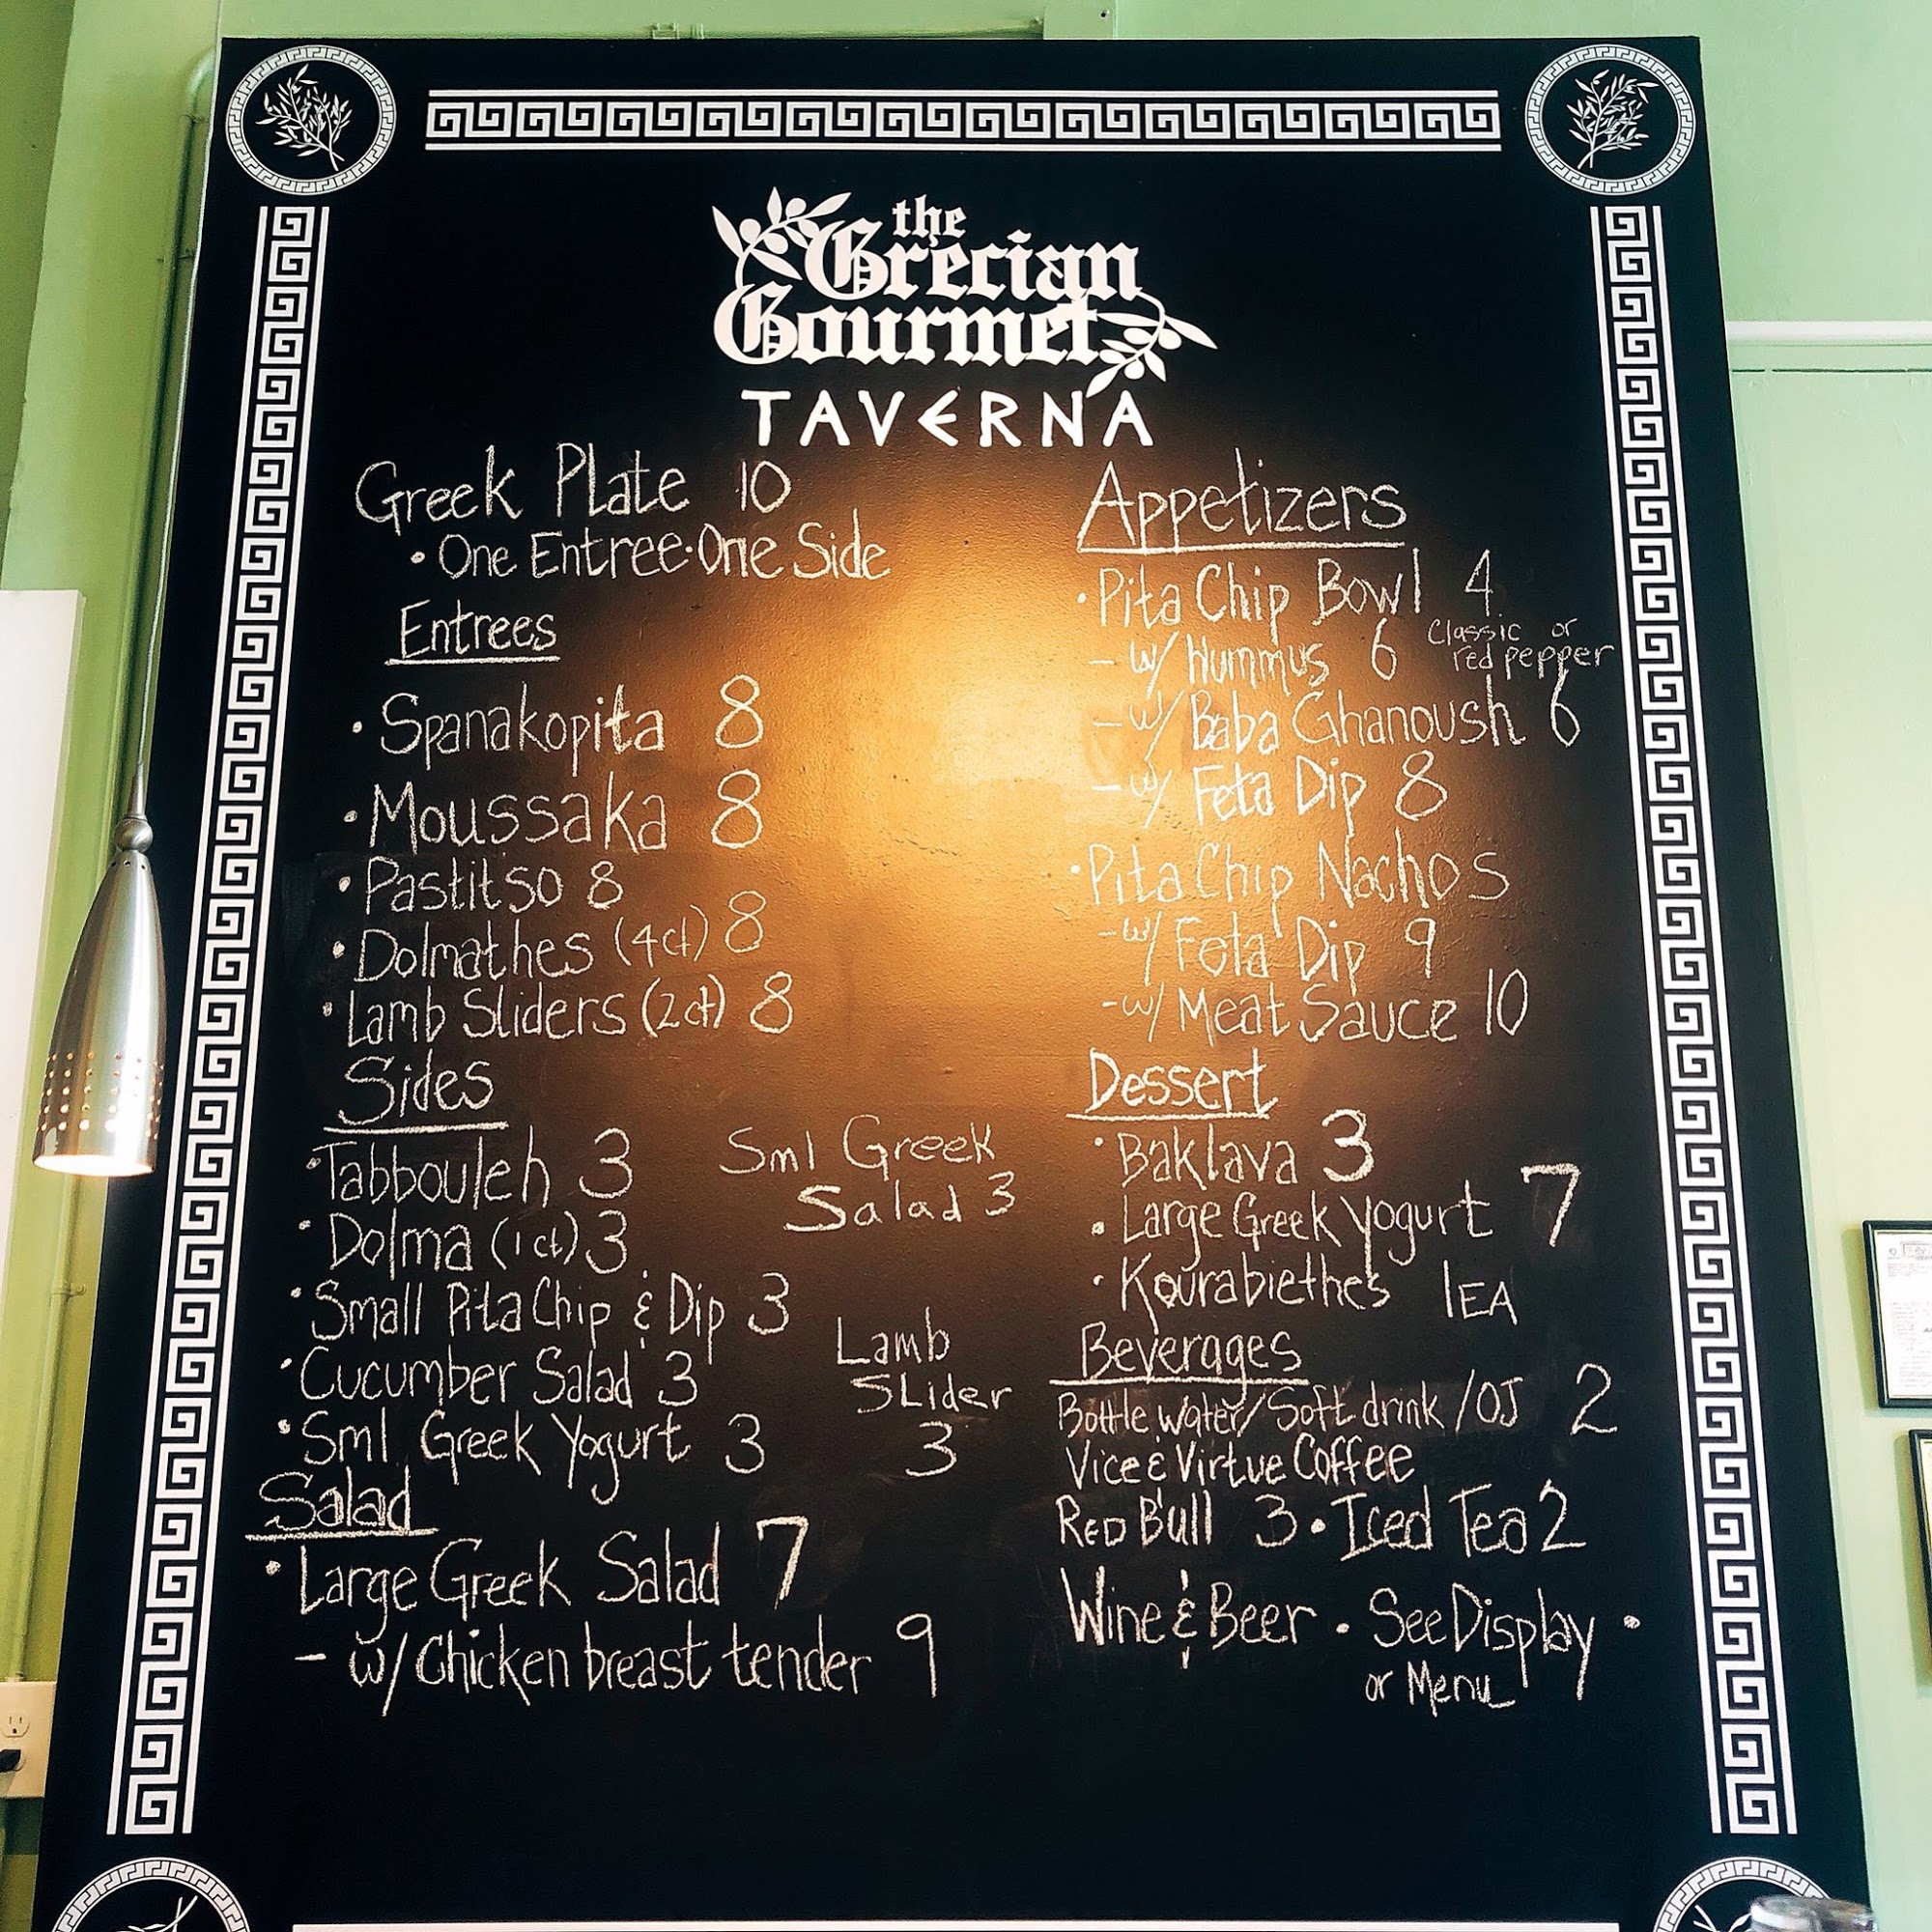 the
Grecian
Gourmet
TAVERNA
Greek Plate 10
• One Entree • One Side
Entrees
• Spanakopita 8
• Moussaka 8
• Pastitso 8
• Dolmathes (4ct) 8
• Lamb Sliders (2ct) 8
Sides
• Tabbouleh 3
• Dolma (1ct) 3
• Small Pita Chip & Dip 3
• Cucumber Salad 3
• Sml Greek Yogurt 3
Sml Greek
Salad 3
Lamb
SLider
3
Salad
• Large Greek Salad 7
- w/ Chicken breast tender 9
Appetizers
• Pita Chip Bowl 4
- w/ Hummus 6 Classic or
red pepper
- w/ Baba Ghanoush 6
- w/ Feta Dip 8
• Pita Chip Nachos
- w/ Feta Dip 9
- w/ Meat Sauce 10
Dessert
• Baklava 3
• Large Greek Yogurt 7
• Kourabiethes 1EA
Beverages
Bottle Water/Soft drink/OJ 2
Vice & Virtue Coffee
RED Bull 3 • Iced Tea 2
Wine & Beer • See Display •
or Menu